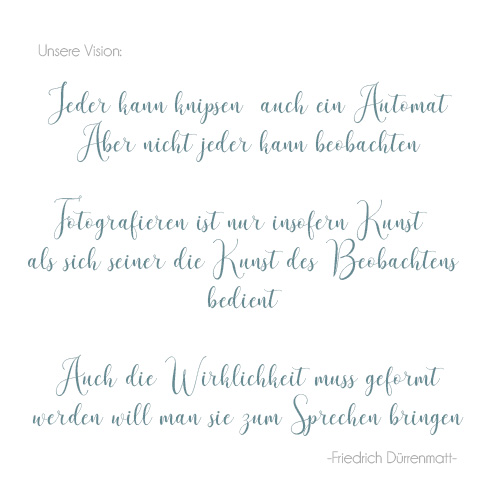 Unsere Vision:
Jeder kann knipsen auch ein Automat
Aber nicht jeder kann beobachten
Fotografieren ist nur insofern Kunst
als sich seiner die Kunst des Beobachtens
bedient
Auch die Wirklichkeit muss geformt
werden will man sie zum Sprechen bringen
-Friedrich Dürrenmatt-